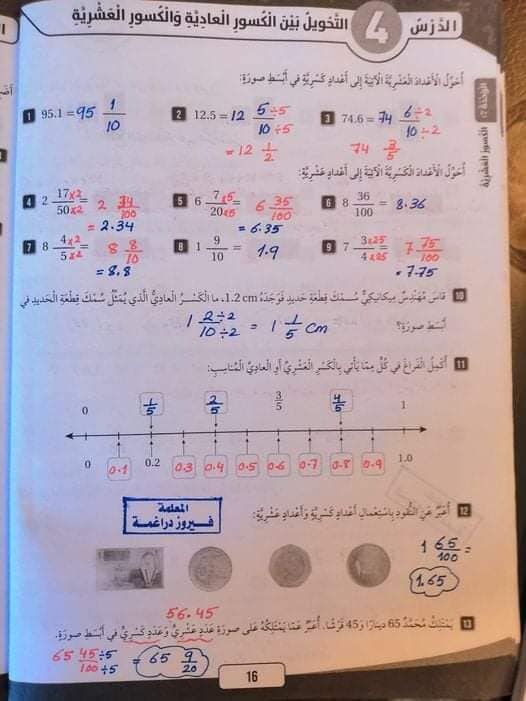 الدَّرْسُ 4 التَّحْوِيلُ بَيْنَ الْكُسُورِ الْعَادِيَّةِ وَالْكُسُورِ الْعَشْرِيَّةِ
أُحَوِّلُ الْأَعْدَادَ الْعَشْرِيَّةَ الْآتِيَةَ إِلَى أَعْدَادٍ كَسْرِيَّةٍ فِي أَبْسَطِ صورَةٍ:
1 95.1 = 95 1/10 2 12.5 = 12 5÷5/10÷5 3 74.6 = 74 6÷2/10÷2
= 12 1/2 74 3/5
أُحَوِّلُ الْأَعْدَادَ الْكَسْرِيَّةَ الْآتِيَةَ إِلَى أَعْدَادٍ عَشْرِيَّةٍ:
4 2 17×2/50×2 = 2 34/100 5 6 7×5/20×5 = 6 35/100 6 8 36/100 = 8.36
= 2.34 = 6.35
7 8 4×2/5×2 = 8 8/10 8 1 9/10 = 1.9 9 7 3×25/4×25 = 7 75/100
= 8.8 = 7.75
10 قاسَ مُهَنْدِسٌ ميكانيكِيٌّ سُمْكَ قِطْعَةِ حَديدٍ فَوَجَدَهُ 1.2 cm، ما الْكَسْرُ الْعادِيُّ الَّذي يُمَثِّلُ سُمْكَ قِطْعَةِ الْحَديدِ في
أَبْسَطِ صورَةٍ؟ 1 2÷2/10÷2 = 1 1/5 cm
11 أُكْمِلُ الْفَراغَ في كُلٍّ مِمّا يَأْتي بِالْكَسْرِ الْعَشْرِيِّ أَوِ الْعادِيِّ الْمُناسِبِ:
0 1/5 2/5 3/5 4/5 1
0 0.1 0.2 0.3 0.4 0.5 0.6 0.7 0.8 0.9 1.0
12 أُعَبِّرُ عَنِ النُّقودِ بِاسْتِعْمالِ أَعْدادٍ كَسْرِيَّةٍ وَأَعْدادٍ عَشْرِيَّةٍ:
المعلمة
فيروز دراغمة
1 65/100 =
1.65
56.45
13 يَمْتَلِكُ مُحَمَّدٌ 65 دينارًا و45 قِرْشًا. أُعَبِّرُ عَمّا يَمْتَلِكُهُ عَلى صورَةِ عَدَدٍ عَشْرِيٍّ وَعَدَدٍ كَسْرِيٍّ في أَبْسَطِ صورَةٍ.
65 45÷5/100÷5 = 65 9/20
16
الْوَحْدَةُ 7: الْكُسورُ الْعَشْرِيَّةُ